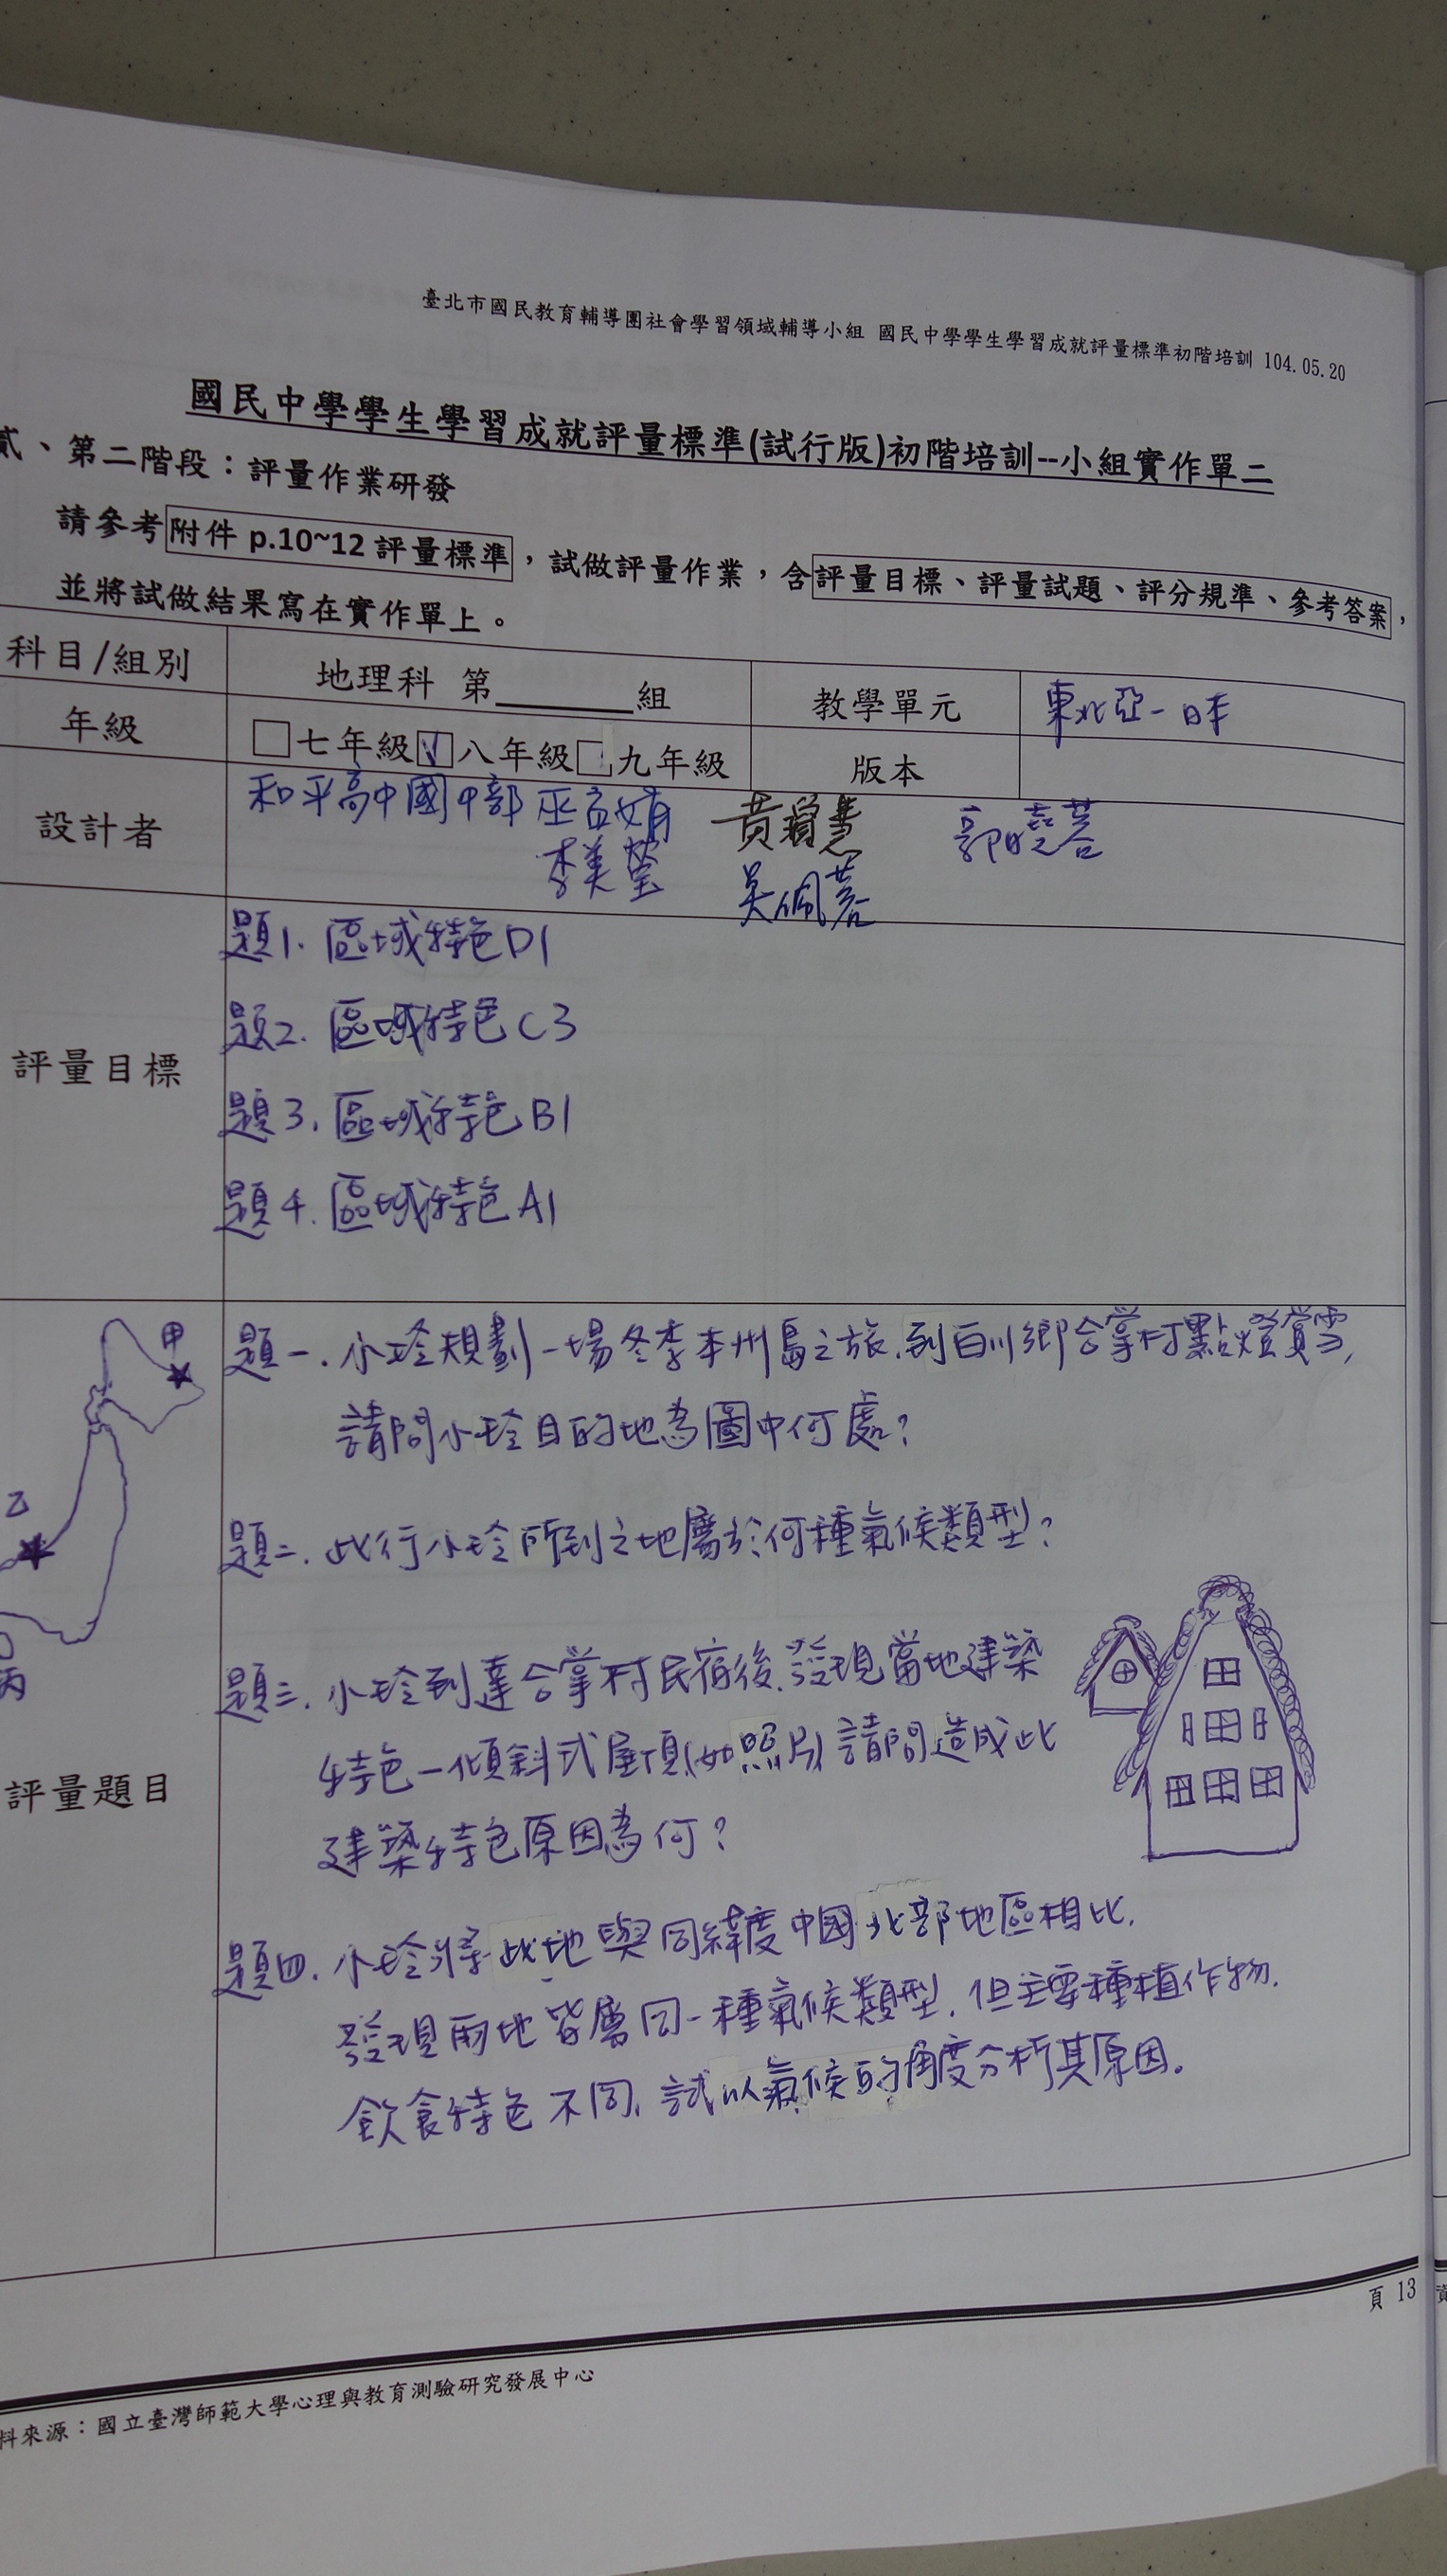 臺北市國民教育輔導團社會學習領域輔導小組 國民中學學生學習成就評量標準初階培訓 104.05.20
國民中學學生學習成就評量標準(試行版)初階培訓--小組實作單二
貳、第二階段：評量作業研發
請參考附件 p.10~12 評量標準，試做評量作業，含評量目標、評量試題、評分規準、參考答案，
並將試做結果寫在實作單上。
科目/組別 地理科 第 組 教學單元 東北亞-日本
年級 七年級 八年級 九年級 版本
設計者 和平高中國中部 巫 娟 黃 慧 郭曉蓉
李美瑩 吳佩蓉
評量目標
題1. 區域特色D1
題2. 區域特色C3
題3. 區域特色B1
題4. 區域特色A1
評量題目
甲
乙
丙
題一. 小玲規劃一場冬季本州島之旅,到白川鄉合掌村點燈賞雪,
請問小玲目的地為圖中何處?
題二. 此行小玲所到之地屬於何種氣候類型?
題三. 小玲到達合掌村民宿後,發現當地建築
特色-傾斜式屋頂(如照片)請問造成此
建築特色原因為何?
題四. 小玲將此地與同緯度中國北部地區相比,
發現兩地皆屬同一種氣候類型,但主要種植作物,
飲食特色不同,試以氣候的角度分析其原因.
頁 13
料來源：國立臺灣師範大學心理與教育測驗研究發展中心